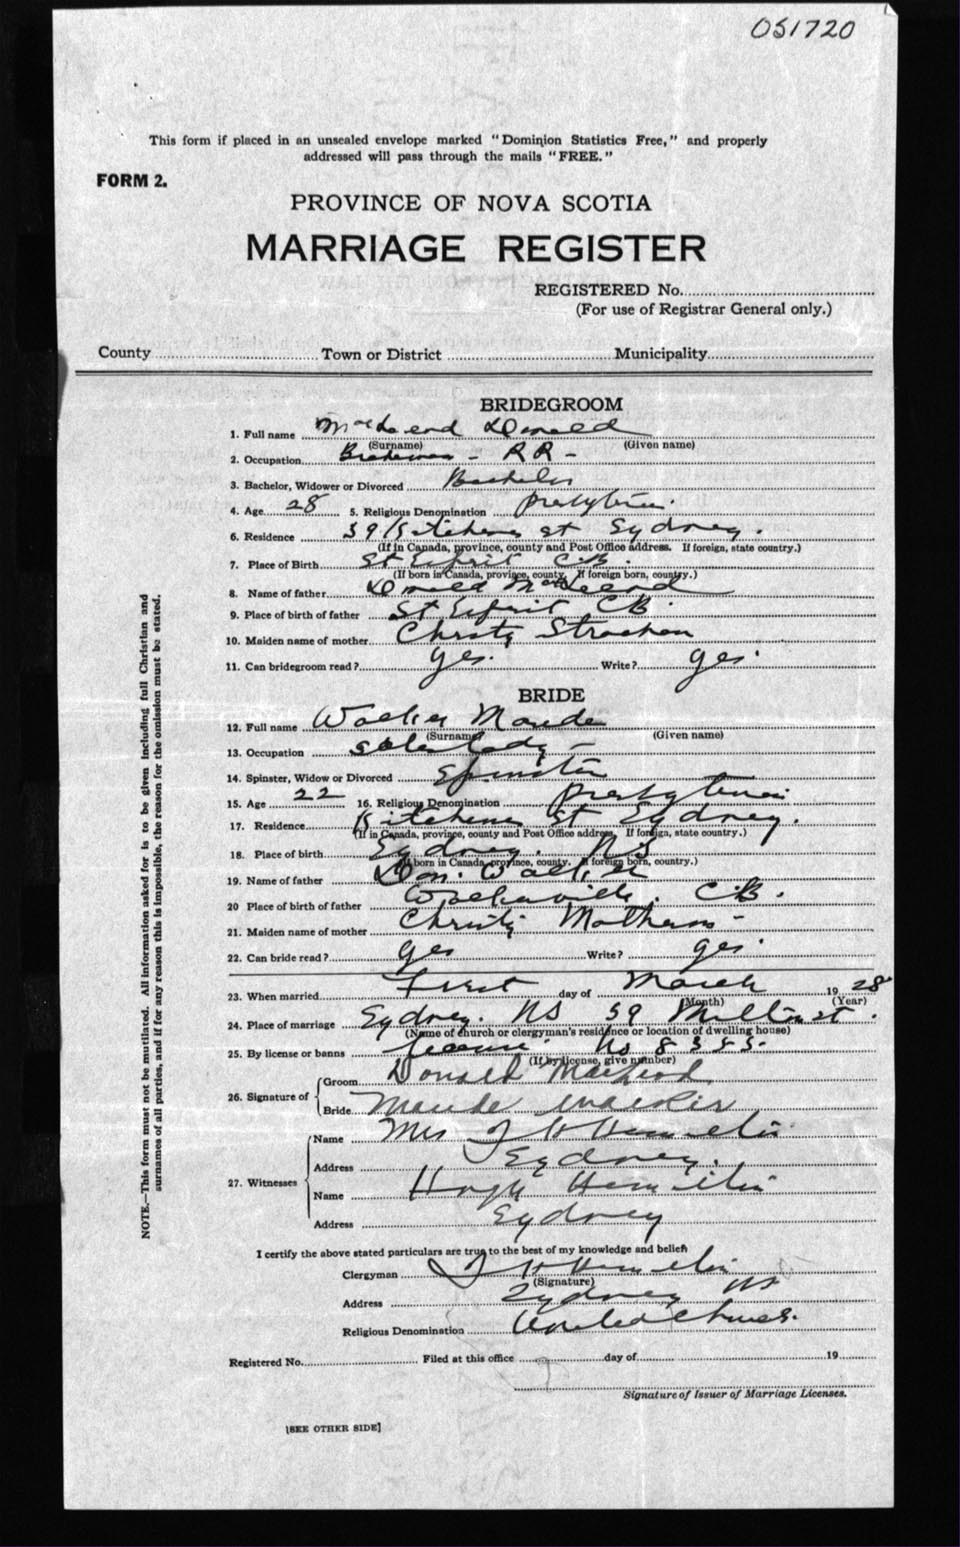 051720
This form if placed in an unsealed envelope marked "Dominion Statistics Free," and properly
addressed will pass through the mails "FREE."
FORM 2.
PROVINCE OF NOVA SCOTIA
MARRIAGE REGISTER
REGISTERED No.
(For use of Registrar General only.)
County Town or District Municipality
BRIDEGROOM
1. Full name MacLeod Donald
(Surname) (Given name)
2. Occupation Brakeman - RR -
3. Bachelor, Widower or Divorced Bachelor
4. Age 28 5. Religious Denomination Presbyterian
6. Residence 39 Kitchener St Sydney.
(If in Canada, province, county and Post Office address. If foreign, state country.)
7. Place of Birth St Esprit C.B.
(If born in Canada, province, county. If foreign born, country.)
8. Name of father Donald MacLeod
9. Place of birth of father St Esprit CB.
10. Maiden name of mother Christy Strachan
11. Can bridegroom read? yes. Write? yes.
BRIDE
12. Full name Walker Maude
(Surname) (Given name)
13. Occupation saleslady -
14. Spinster, Widow or Divorced Spinster
15. Age 22 16. Religious Denomination Presbyterian
17. Residence Kitchener St Sydney.
(If in Canada, province, county and Post Office address. If foreign, state country.)
18. Place of birth Sydney. NS
(If born in Canada, province, county. If foreign born, country.)
19. Name of father Don. Walker
20 Place of birth of father C.B.
21. Maiden name of mother Christy -
22. Can bride read? yes Write? yes.
23. When married First day of March 19 28
(Month) (Year)
24. Place of marriage Sydney. NS 59 st.
(Name of church or clergyman's residence or location of dwelling house)
25. By license or banns license. No 8353.
(If by license, give number)
26. Signature of Groom Donald MacLeod
Bride Maude Walker
27. Witnesses Name Mrs Hamilton
Address Sydney.
Name Hugh Hamilton
Address Sydney
I certify the above stated particulars are true to the best of my knowledge and belief.
Clergyman Hamilton
(Signature)
Address Sydney NS
Religious Denomination United Church.
Registered No. Filed at this office day of 19
Signature of Issuer of Marriage Licenses.
[SEE OTHER SIDE]
NOTE.—This form must not be mutilated. All information asked for is to be given including full Christian and
surnames of all parties, and if for any reason this is impossible, the reason for the omission must be stated.